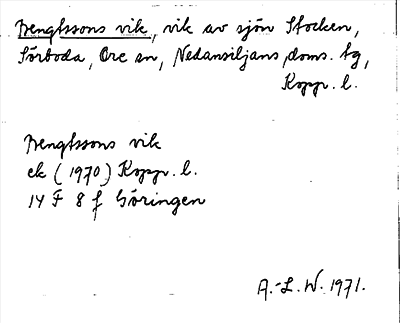 Bengtssons vik, vik av sjön Stocken,
Sörboda, Ore sn, Nedansiljans doms. tg,
Kopp. l.
Bengtssons vik
ek (1970) Kopp. l.
14 F 8 f Göringen
A.-L. W. 1971.